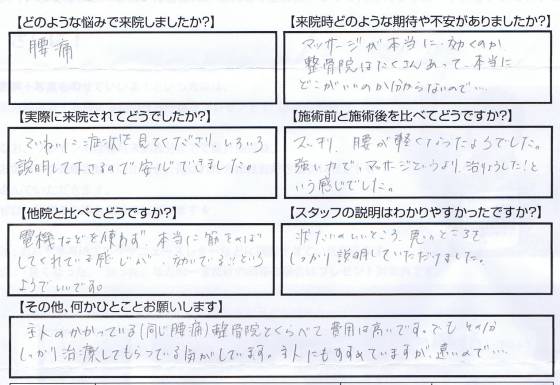 【どのような悩みで来院しましたか?】
腰痛
【来院時どのような期待や不安がありましたか?】
マッサージが本当に効くのか
整骨院はたくさんあって、本当に
どこがいいのか分からないので…
【実際に来院されてどうでしたか?】
ていねいに症状を見てくださり、いろいろ
説明して下さるので安心できました。
【施術前と施術後を比べてどうですか?】
スッキリ、腰が軽くなったようでした。
強い力で、マッサージというより、治りょうした!と
いう感じでした。
【他院と比べてどうですか?】
電機などを使わず、本当に筋をのば
してくれている感じが、効いてる〜という
ようでいいです。
【スタッフの説明はわかりやすかったですか?】
状たいのいいところ、悪いところを
しっかり説明していただけました。
【その他、何かひとことお願いします】
主人のかかっている(同じ腰痛)整骨院とくらべて費用は高いです。でもその分
しっかり治療してもらっている気がしています。主人にもすすめていますが、遠いので…